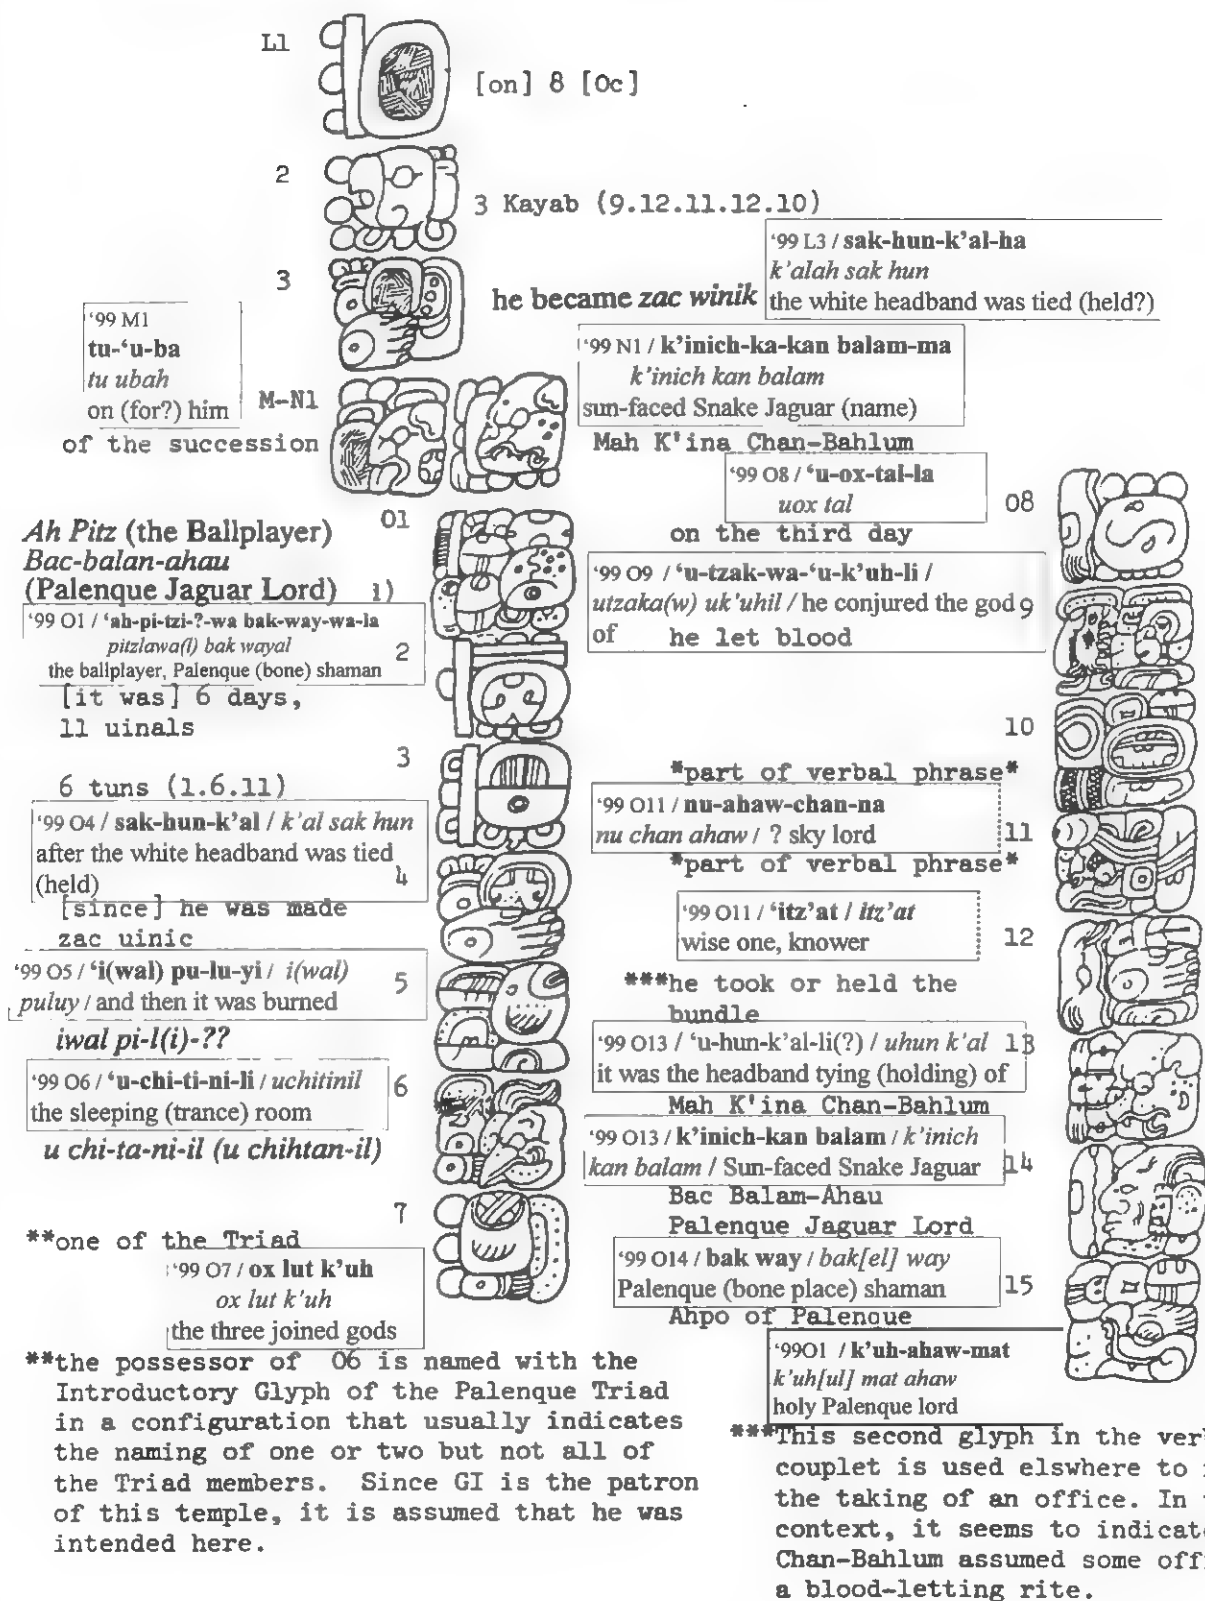 L1
[on] 8 [Oc]
2
3 Kayab (9.12.11.12.10)
'99 L3 / sak-hun-k'al-ha
k'alah sak hun
the white headband was tied (held?)
3
he became zac winik
'99 M1
tu-'u-ba
tu ubah
on (for?) him
M-N1
of the succession
'99 N1 / k'inich-ka-kan balam-ma
k'inich kan balam
sun-faced Snake Jaguar (name)
Mah K'ina Chan-Bahlum
O1
Ah Pitz (the Ballplayer)
Bac-balan-ahau
(Palenque Jaguar Lord) 1)
'99 O1 / 'ah-pi-tzi-?-wa bak-way-wa-la
pitzlawa(l) bak wayal
the ballplayer, Palenque (bone) shaman
2
[it was] 6 days,
11 uinals
3
6 tuns (1.6.11)
'99 O4 / sak-hun-k'al / k'al sak hun
after the white headband was tied
(held)
4
[since] he was made
zac uinic
'99 O5 / 'i(wal) pu-lu-yi / i(wal)
puluy / and then it was burned
5
iwal pi-l(i)-??
'99 O6 / 'u-chi-ti-ni-li / uchitinil
the sleeping (trance) room
6
u chi-ta-ni-il (u chihtan-il)
7
**one of the Triad
'99 O7 / ox lut k'uh
ox lut k'uh
the three joined gods
**the possessor of O6 is named with the
Introductory Glyph of the Palenque Triad
in a configuration that usually indicates
the naming of one or two but not all of
the Triad members. Since GI is the patron
of this temple, it is assumed that he was
intended here.
'99 O8 / 'u-ox-tal-la
uox tal
O8
on the third day
'99 O9 / 'u-tzak-wa-'u-k'uh-li /
utzaka(w) uk'uhil / he conjured the god
of
9
he let blood
10
*part of verbal phrase*
'99 O11 / nu-ahaw-chan-na
nu chan ahaw / ? sky lord
11
*part of verbal phrase*
'99 O11 / 'itz'at / itz'at
wise one, knower
12
***he took or held the
bundle
'99 O13 / 'u-hun-k'al-li(?) / uhun k'al
it was the headband tying (holding) of
13
Mah K'ina Chan-Bahlum
'99 O13 / k'inich-kan balam / k'inich
kan balam / Sun-faced Snake Jaguar
14
Bac Balam-Ahau
Palenque Jaguar Lord
'99 O14 / bak way / bak[el] way
Palenque (bone place) shaman
15
Ahpo of Palenque
'99O1 / k'uh-ahaw-mat
k'uh[ul] mat ahaw
holy Palenque lord
***This second glyph in the
couplet is used elswhere to
the taking of an office. In
context, it seems to
Chan-Bahlum assumed some
a blood-letting rite.